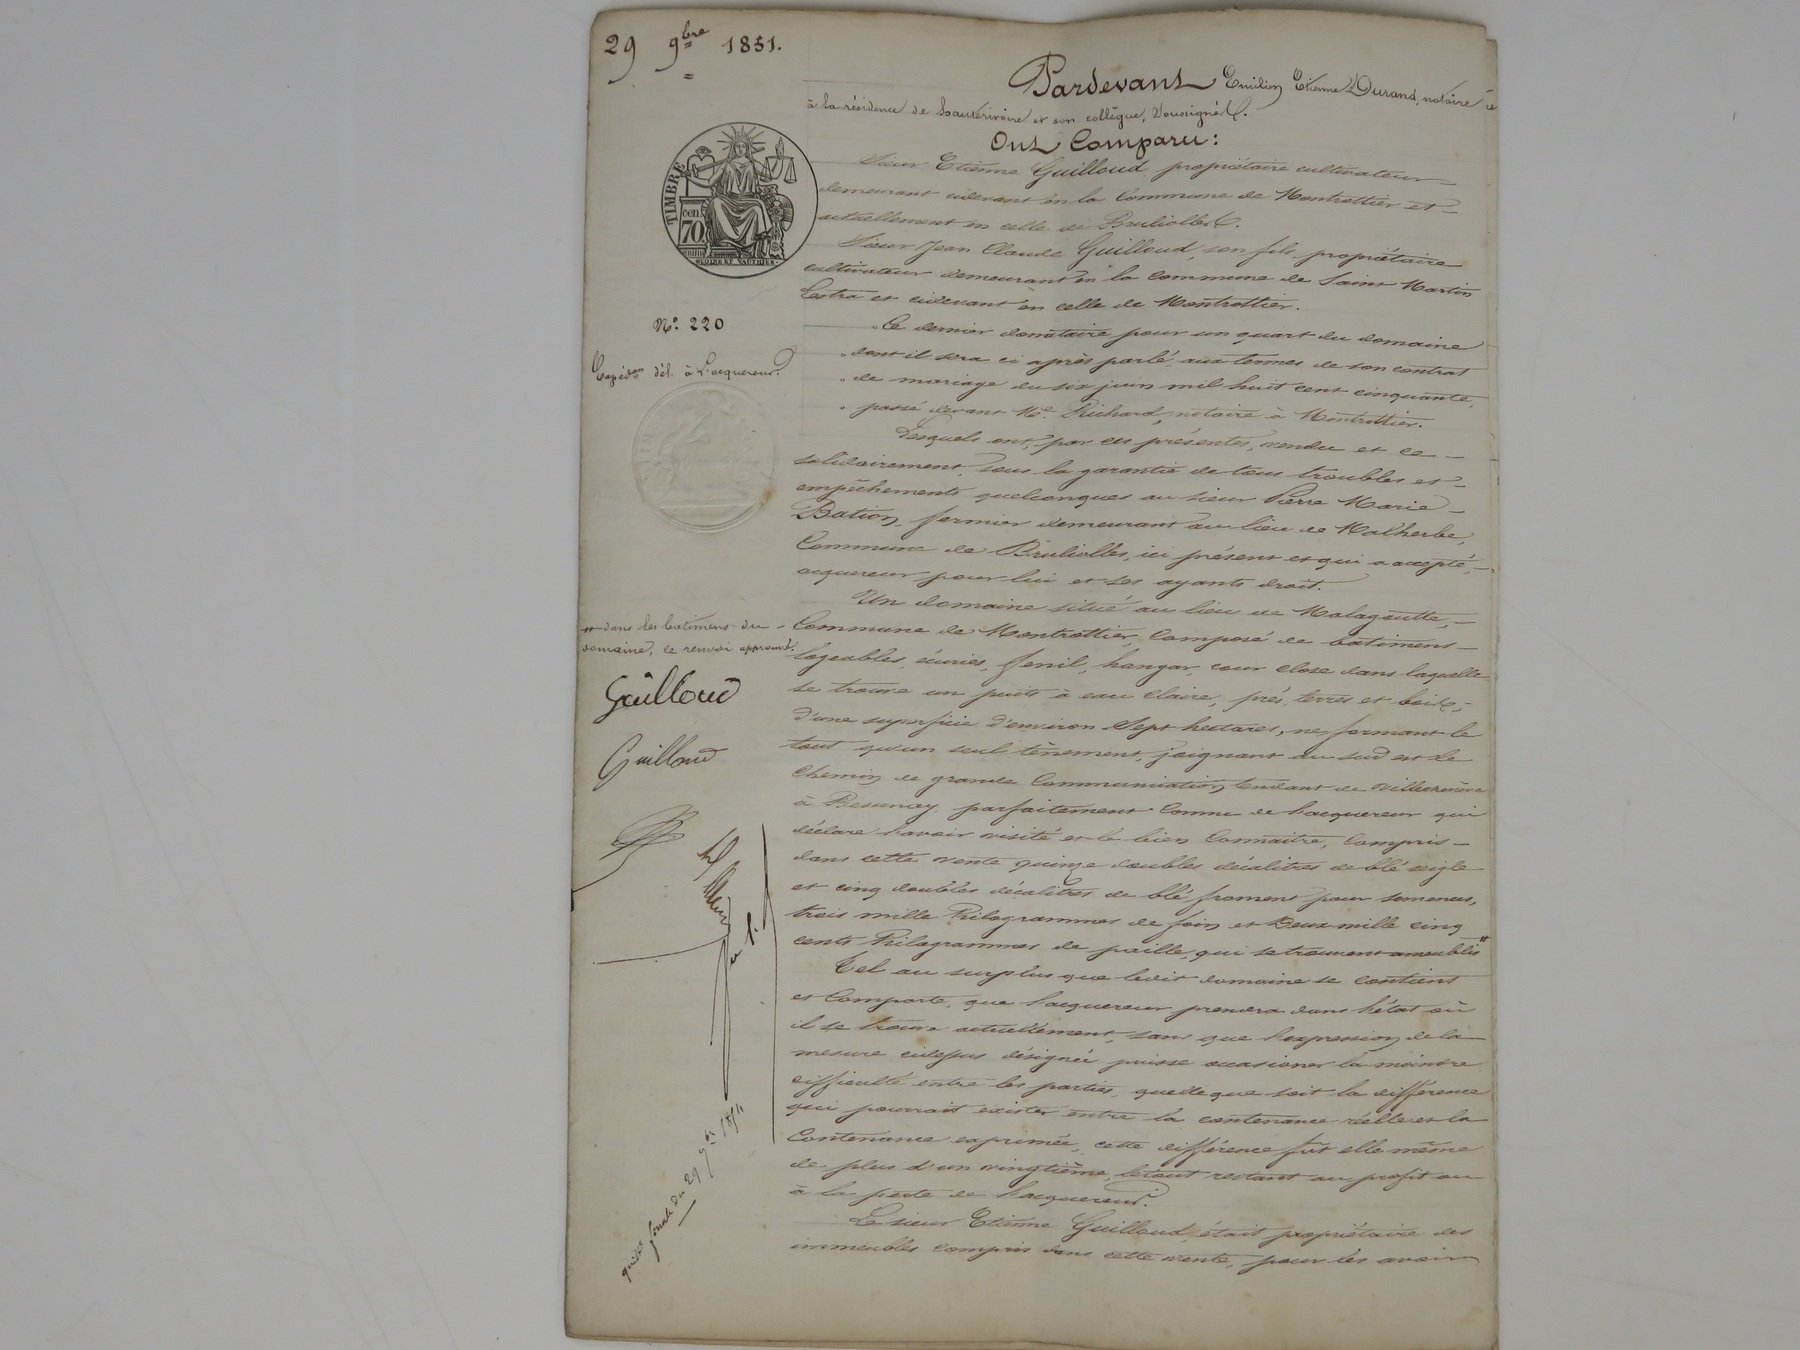 29 9bre 1851.
Pardevant Emilien Etienne Durand, notaire
à la résidence de hauterivoire et son collègue, soussignés.
Ont Comparu:
Sieur Etienne Guilloud, propriétaire cultivateur
demeurant cidevant en la Commune de Montrottier et
actuellement en celle de Brullioles.
Sieur Jean Claude Guilloud, son fils, propriétaire
cultivateur demeurant en la Commune de Saint Martin
Lestra et cidevant en celle de Montrottier.
" Ce dernier donataire pour un quart du domaine
" dont il sera ci après parlé, aux termes de son contrat
" de mariage du six juin mil huit cent cinquante,
" passé devant Me. Richard, notaire à Montrottier.
Lesquels ont, par ces présentes, vendu et ce
solidairement, sous la garantie de tous troubles et
empêchements quelconques au sieur Pierre Marie
Bation, fermier demeurant au lieu de Malherbe,
Commune de Brulioles, ici présent et qui a accepté,
acquereur pour lui et ses ayants droit.
Un domaine situé au lieu de Malagoutte,
Commune de Montrottier, Composé de batimens
logeables, écuries, fenil, hangar, cour close dans laquelle
se trouve un puits à eau claire, prés, terres et bois,
d'une superficie d'environ Sept hectares, ne formant le
tout qu'un seul tènement, joignant au sud est le
Chemin de grande Communication tendant de Villechenève
à Bessenay, parfaitement Connu de l'acquereur qui
déclare l'avoir visité et le bien Connaitre, Compris
dans cette vente quinze doubles décalitres de blé seigle
et cinq doubles décalitres de blé froment pour semences,
trois mille Kilogrammes de foin et Deux mille cinq
cents Kilogrammes de paille, qui se trouvent ameublis #
Tel au surplus que ledit domaine se contient
et Comporte, que l'acquereur prendra dans l'état où
il se trouve actuellement, sans que l'expression de la
mesure cidessus désignée puisse occasioner la moindre
difficulté entre les parties, quelle que soit la différence
qui pourrait exister entre la contenance réelle et la
Contenance exprimée, cette différence fût elle même
de plus d'un vingtième, le tout restant au profit ou
à la perte de l'acquereur.
Le sieur Etienne Guilloud, était propriétaire des
immeubles compris dans cette vente, pour les avoir
TIMBRE
70
No. 220
Expédon dél. à L'acquereur.
# dans les batimens du
domaine, le renvoi approuvé.
Guilloud
Guilloud
quitce finale du 29